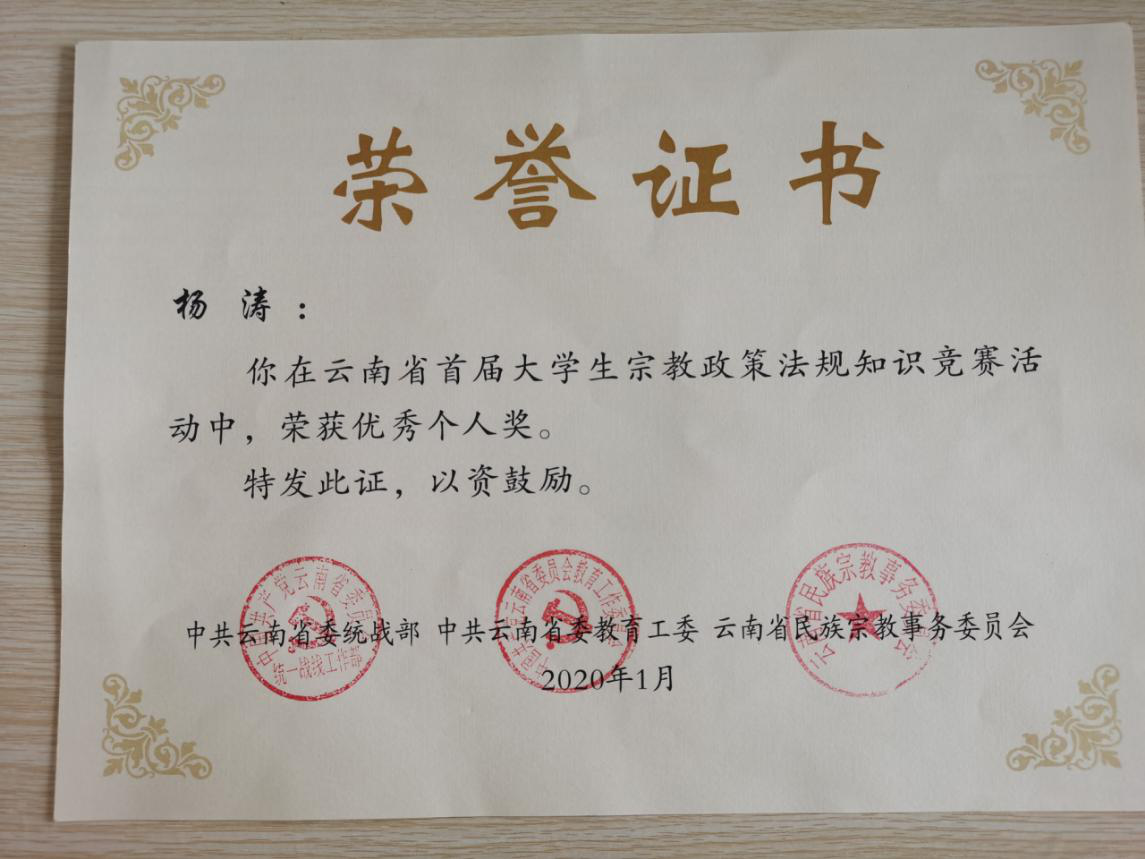 荣誉证书
杨 涛：
你在云南省首届大学生宗教政策法规知识竞赛活
动中，荣获优秀个人奖。
特发此证，以资鼓励。
中国共产党云南省委员会
统一战线工作部
中国共产党云南省委员会教育工作委员会
云南省民族宗教事务委员会
中共云南省委统战部 中共云南省委教育工委 云南省民族宗教事务委员会
2020年1月